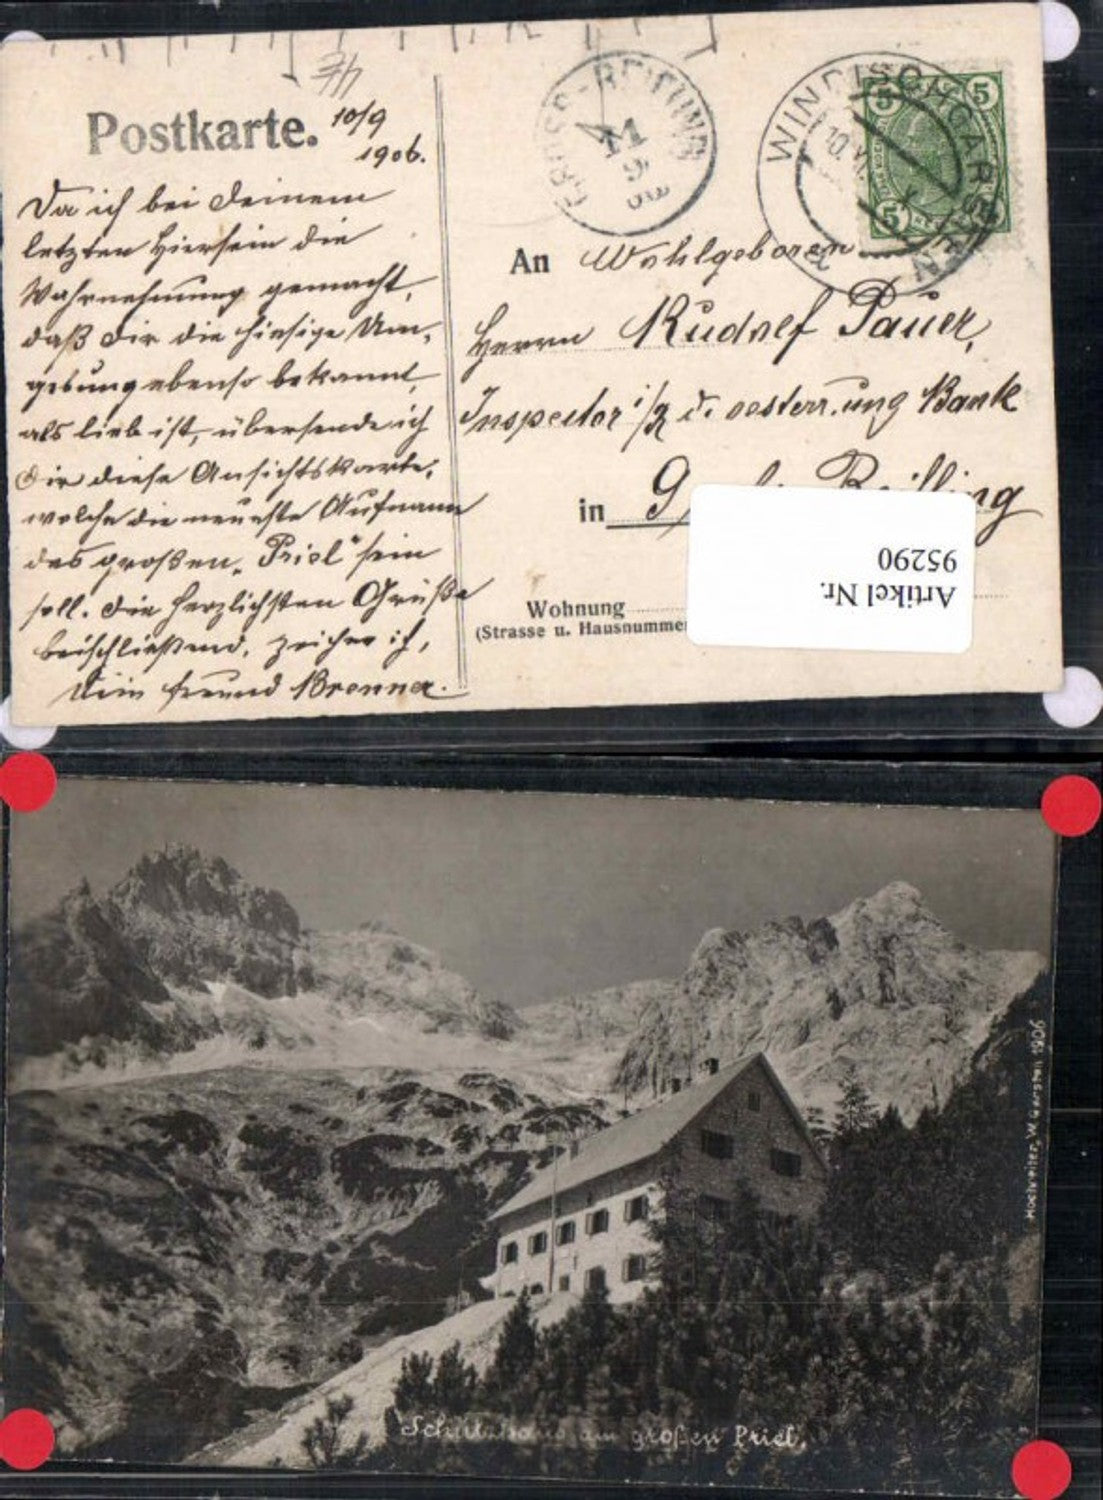 Postkarte.
10/9
1906.
Da ich bei Deinem
letzten Hiersein die
Wahrnehmung gemacht,
daß Dir die hiesige Um-
gebung ebenso bekannt,
als lieb ist, übersende ich
Dir diese Ansichtskarte,
welche die neueste Aufnahme
des großen „Priel" sein
soll. Die herzlichsten Grüße
beischließend, zeichne ich,
Dein Freund Brenner.
GROSS-REIFLING
11 9 06
WINDISCHGARSTEN
10.
5 5
5
An Wohlgeboren
Herrn Rudolf Pauer,
Inspector i/P. d. oesterr. ung Bank
in
Wohnung
(Strasse u. Hausnummer
Artikel Nr.
95290
Hochreiter, W.Garsten 1906
Schutzhaus am großen Priel.